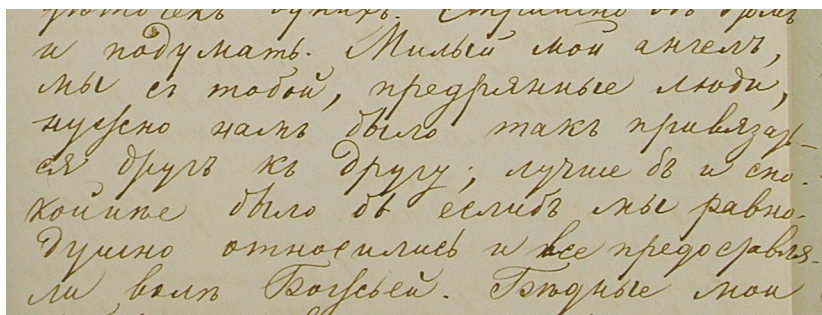 и подумать. Милый мой ангелъ,
мы съ тобой, предрянные люди,
нужно намъ было такъ привязать-
ся другъ къ другу; лучше бъ и спо-
койнѣе было бъ еслибъ мы равно-
душно относились и все предоставля-
ли волѣ Божьей. Бѣдные мои